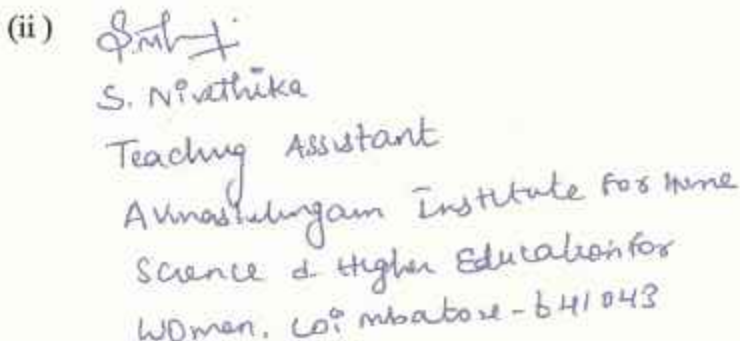 (ii)
S. Nivethika
Teaching Assistant
Avinashilingam Institute for Home
Science & Higher Education for
Women. Coimbatore - 641043